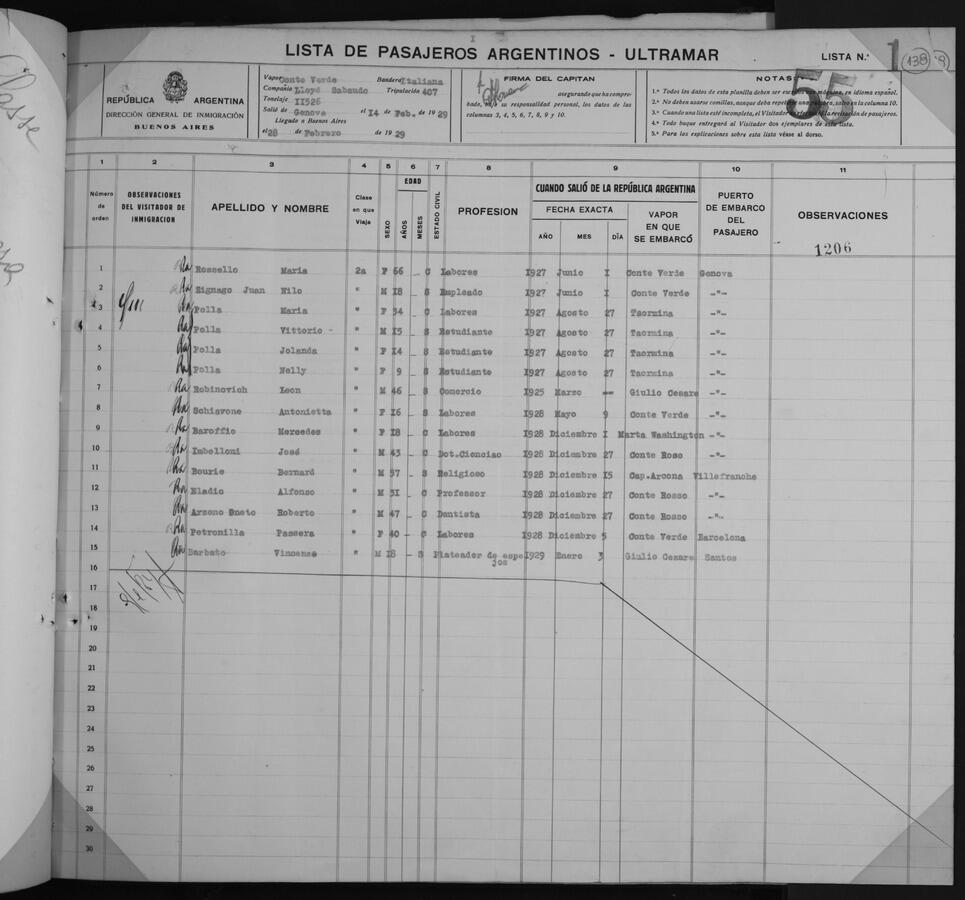 LISTA DE PASAJEROS ARGENTINOS - ULTRAMAR
LISTA N.° 1 138
REPÚBLICA ARGENTINA
DIRECCIÓN GENERAL DE INMIGRACIÓN
BUENOS AIRES
Vapor Conte Verde Bandera Italiana
Compañia Lloyd Sabaudo Tripulación 407
Tonelaje II526
Salió de Genova el I4 de Feb. de 1929
Llegado a Buenos Aires
el 28 de Febrero de 1929
FIRMA DEL CAPITAN
asegurando que ha compro-
bado, bajo su responsabilidad personal, los datos de las
columnas 3, 4, 5, 6, 7, 8, 9 y 10.
NOTAS:
1.ª Todos los datos de esta planilla deben ser máquina, en idioma español.
2.ª No deben usarse comillas, aunque deba salvo en la columna 10.
3.ª Cuando una lista esté incompleta, el Visitador revisación de pasajeros.
4.ª Todo buque entregará al Visitador dos ejemplares de esta lista.
5.ª Para las explicaciones sobre esta lista véase al dorso.
55
1 2 3 4 5 6 7 8 9 10 11
Número de orden
OBSERVACIONES DEL VISITADOR DE INMIGRACIÓN
APELLIDO Y NOMBRE
Clase en que Viaja
SEXO
EDAD
AÑOS
MESES
ESTADO CIVIL
PROFESION
CUANDO SALIÓ DE LA REPÚBLICA ARGENTINA
FECHA EXACTA
AÑO MES DÍA
VAPOR EN QUE SE EMBARCÓ
PUERTO DE EMBARCO DEL PASAJERO
OBSERVACIONES
1206
1 Rossello Maria 2a F 66 - C Labores I927 Junio I Conte Verde Genova
2 Zignago Juan Nilo " M I8 - S Empleado I927 Junio I Conte Verde -"-
3 Polla Maria " F 34 - C Labores I927 Agosto 27 Taormina -"-
4 Polla Vittorio - " M I5 - S Estudiante I927 Agosto 27 Taormina -"-
5 Polla Jolanda " F I4 - S Estudiante I927 Agosto 27 Taormina -"-
6 Polla Nelly " F 9 - S Estudiante I927 Agosto 27 Taormina -"-
7 Robinovich Leon " M 46 - S Comercio I925 Marzo -- Giulio Cesare -"-
8 Schiavone Antonietta " F I6 - S Labores I928 Mayo 9 Conte Verde -"-
9 Baroffio Mercedes " F I8 - C Labores I928 Diciembre I Marta Washington -"-
10 Imbelloni José " M 43 - C Dot.Cienciao I928 Diciembre 27 Conte Roso -"-
11 Bourie Bernard " M 57 - S Religioso I928 Diciembre I5 Cap.Arcona Villefranche
12 Eladio Alfonso " M 3I - C Professor I928 Diciembre 27 Conte Rosso -"-
13 Arzeno Dneto Roberto " M 47 - C Dentista I928 Diciembre 27 Conte Rosso -"-
14 Petronilla Passera " F 40 - C Labores I928 Diciembre 5 Conte Verde Barcelona
15 Barbato Vincenzo " M I8 - S Plateador de espe I929 Enero 3 Giulio Cesare Santos
jos
16
17
18
19
20
21
22
23
24
25
26
27
28
29
30